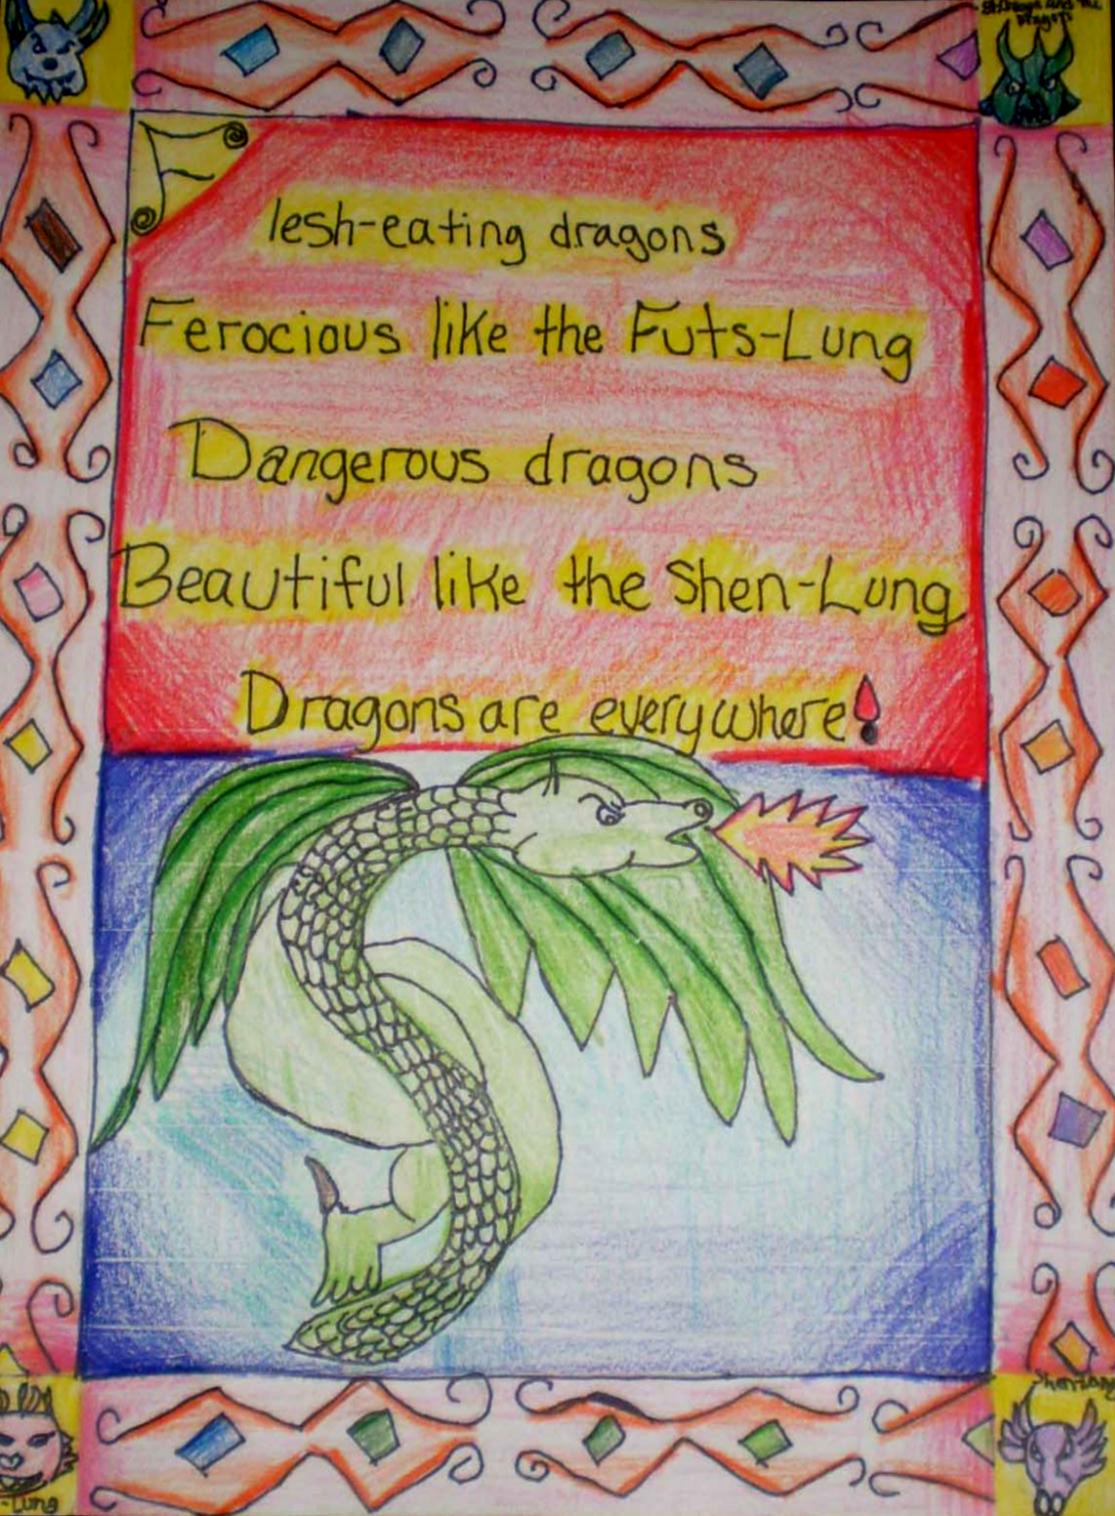 Flesh-eating dragons
Ferocious like the Futs-Lung
Dangerous dragons
Beautiful like the Shen-Lung
Dragons are everywhere!
-Lung